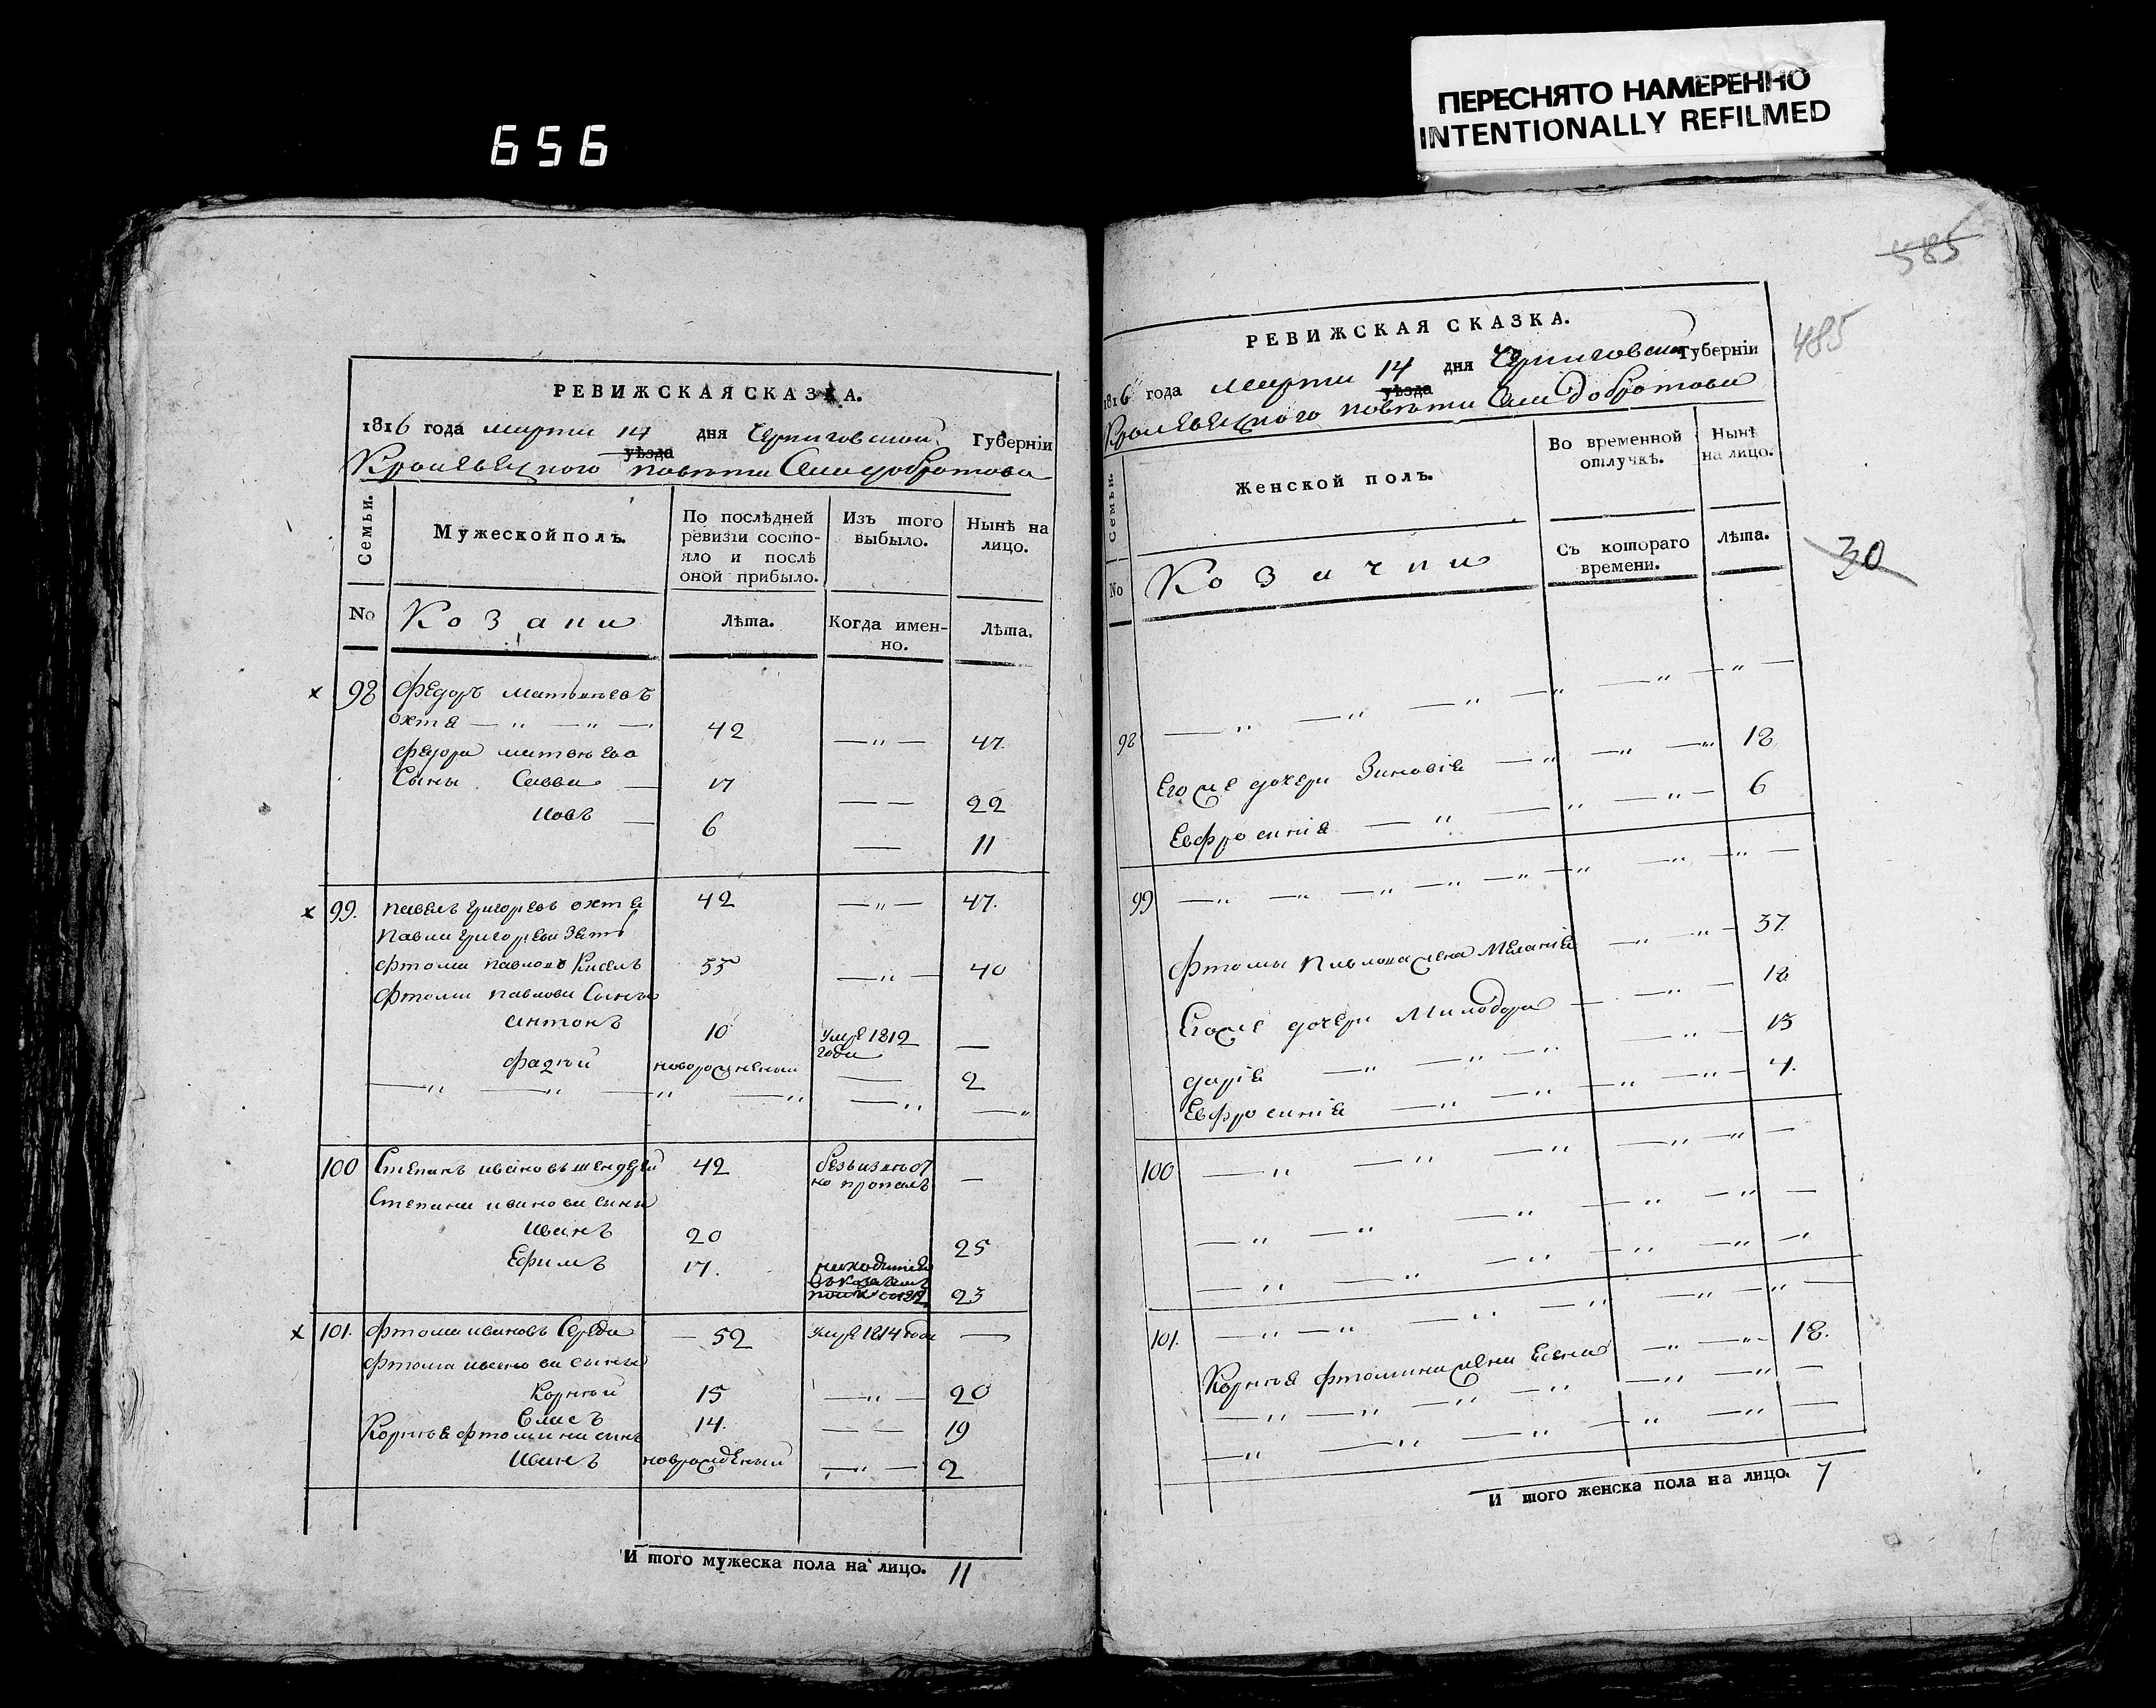 656
ПЕРЕСНЯТО НАМЕРЕННО
INTENTIONALLY REFILMED
РЕВИЖСКАЯ СКАЗКА.
1816 года марта 14 дня Черниговской Губернїи
уѣзда
Кролевецкого повѣта Села добротова
Семьи.
Мужеской полъ.
По послѣдней ревизїи состояло и послѣ оной прибыло.
Изъ того выбыло.
Нынѣ на лицо.
No
Козаки
Лѣта.
Когда именно.
Лѣта.
98 Федоръ матвѣевъ
охтя — „ — „ — 42 — „ — 47.
Федора матвѣева
Сыны Савва — 17 — — 22
Иовъ — 6 — 11
99. павелъ григорьевъ охтя 42 — „ — 47.
павла григорьева зять
Фтома павловъ Киселъ 35 — „ — 40
Фтомы павлова Сыны
антонъ 10 умре 1812 года —
Фадѣй новорожденый — 2
100 Степанъ ивановъ 42 безъизвѣстно пропалъ —
Степана иванова сыны
иванъ 20 25
Ефимъ 17. 23
101. Фтома ивановъ Середа — 52 умре 1814 года —
Фтома иванова сыны
Корнѣй 15 — „ — 20
14. — — 19
Корнѣя фтомина сынъ
Иванъ новрожденый — „ — 2
И того мужеска пола на лицо. 11
585
485
30
РЕВИЖСКАЯ СКАЗКА.
1816 года марта 14 дня Черниговской Губернїи
уѣзда
Кролевецкого повѣта Села добротова
Семьи.
Женской полъ.
Во временной отлучкѣ.
Нынѣ на лицо.
No
Козачки
Съ котораго времени.
Лѣта.
98
Егоже дочери Зиновія — „ — „ — „ 18
Евфросинія — „ — „ — „ — 6
99
Фтомы Павлова жена Меланія — „ — „ — 37.
Егоже дочери Милодора — — „ — 18
дарія — „ — „ — „ — 15
Евфросинія — „ — „ — „ — „ — 4.
100
101.
Корнѣя фтомина жена Елена — „ — „ — 18.
И того женска пола на лицо. 7